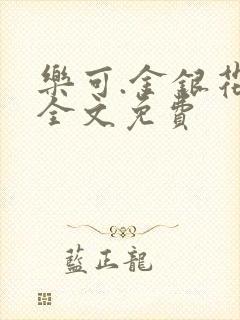 樂可.金銀花
全文免費
藍正龍